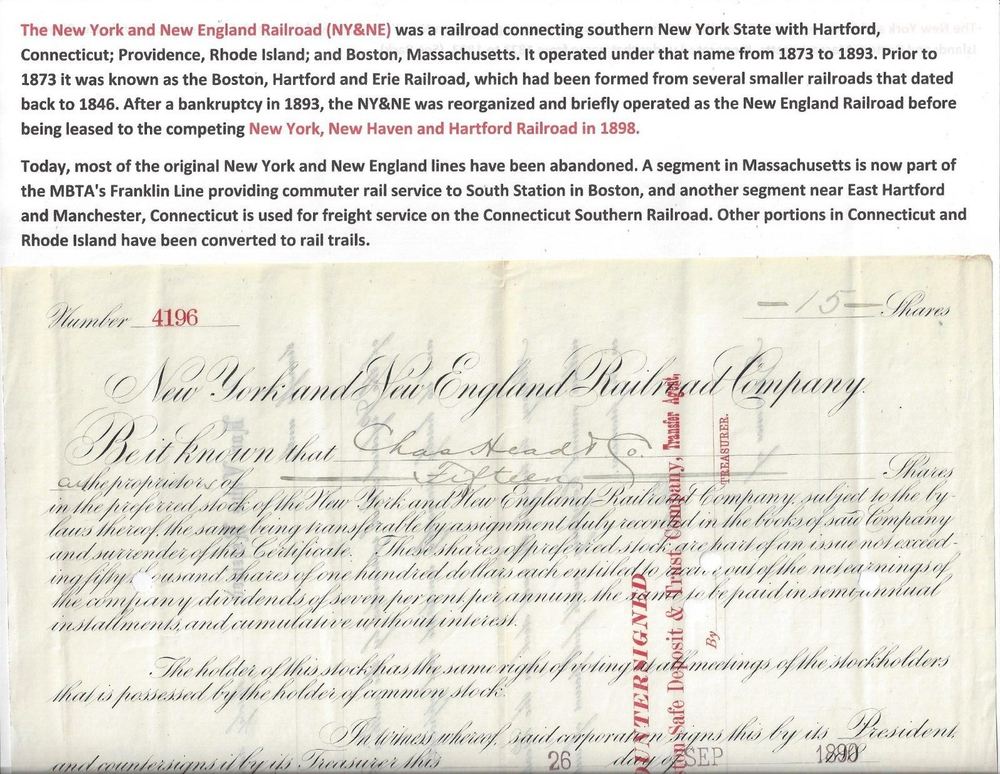 The New York and New England Railroad (NY&NE) was a railroad connecting southern New York State with Hartford,
Connecticut; Providence, Rhode Island; and Boston, Massachusetts. It operated under that name from 1873 to 1893. Prior to
1873 it was known as the Boston, Hartford and Erie Railroad, which had been formed from several smaller railroads that dated
back to 1846. After a bankruptcy in 1893, the NY&NE was reorganized and briefly operated as the New England Railroad before
being leased to the competing New York, New Haven and Hartford Railroad in 1898.
Today, most of the original New York and New England lines have been abandoned. A segment in Massachusetts is now part of
the MBTA's Franklin Line providing commuter rail service to South Station in Boston, and another segment near East Hartford
and Manchester, Connecticut is used for freight service on the Connecticut Southern Railroad. Other portions in Connecticut and
Rhode Island have been converted to rail trails.
Number 4196
— 15 — Shares
New York and New England Railroad Company.
Be it known that Chas Head & Co.
are the proprietors of — Fifteen — Shares
in the preferred stock of the New York and New England Railroad Company, subject to the by-
laws thereof, the same being transferable by assignment duly recorded in the books of said Company
and surrender of this Certificate. These shares of preferred stock are part of an issue not exceed-
ing fifty thousand shares of one hundred dollars each entitled to receive out of the net earnings of
the company dividends of seven per cent. per annum, the same to be paid in semi-annual
installments, and cumulative without interest.
The holder of this stock has the same right of voting at all meetings of the stockholders
that is possessed by the holder of common stock.
In witness whereof, said corporation signs this by its President,
and countersigns it by its Treasurer this 26 day of SEP 1890
OUNTERSIGNED
ston Safe Deposit & Trust Company, Transfer Agent,
By TREASURER.